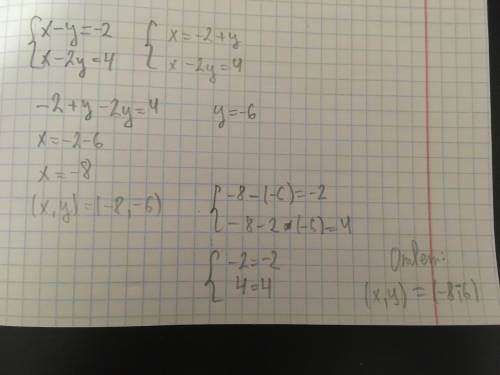 { x-y=-2
x-2y=4
{ x=-2+y
x-2y=4
-2+y-2y=4
y=-6
x=-2-6
x=-8
(x,y)=(-8,-6)
{ -8-(-6)=-2
-8-2*(-6)=4
{ -2=-2
4=4
Ответ:
(x,y)=(-8;-6)